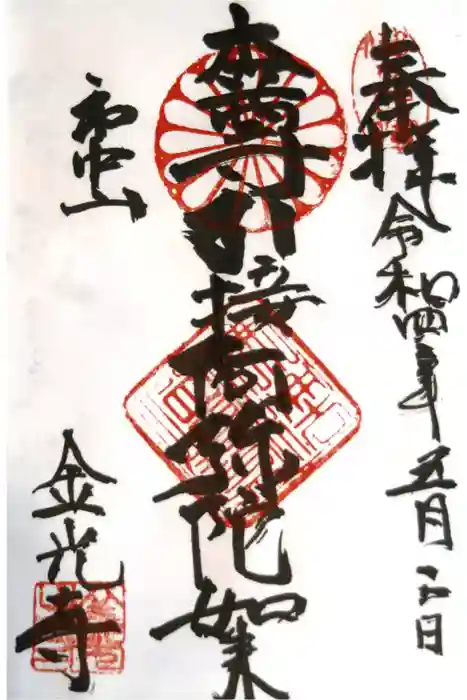 奉拝 令和四年五月二日
本尊 引接阿弥陀如来
金光寺